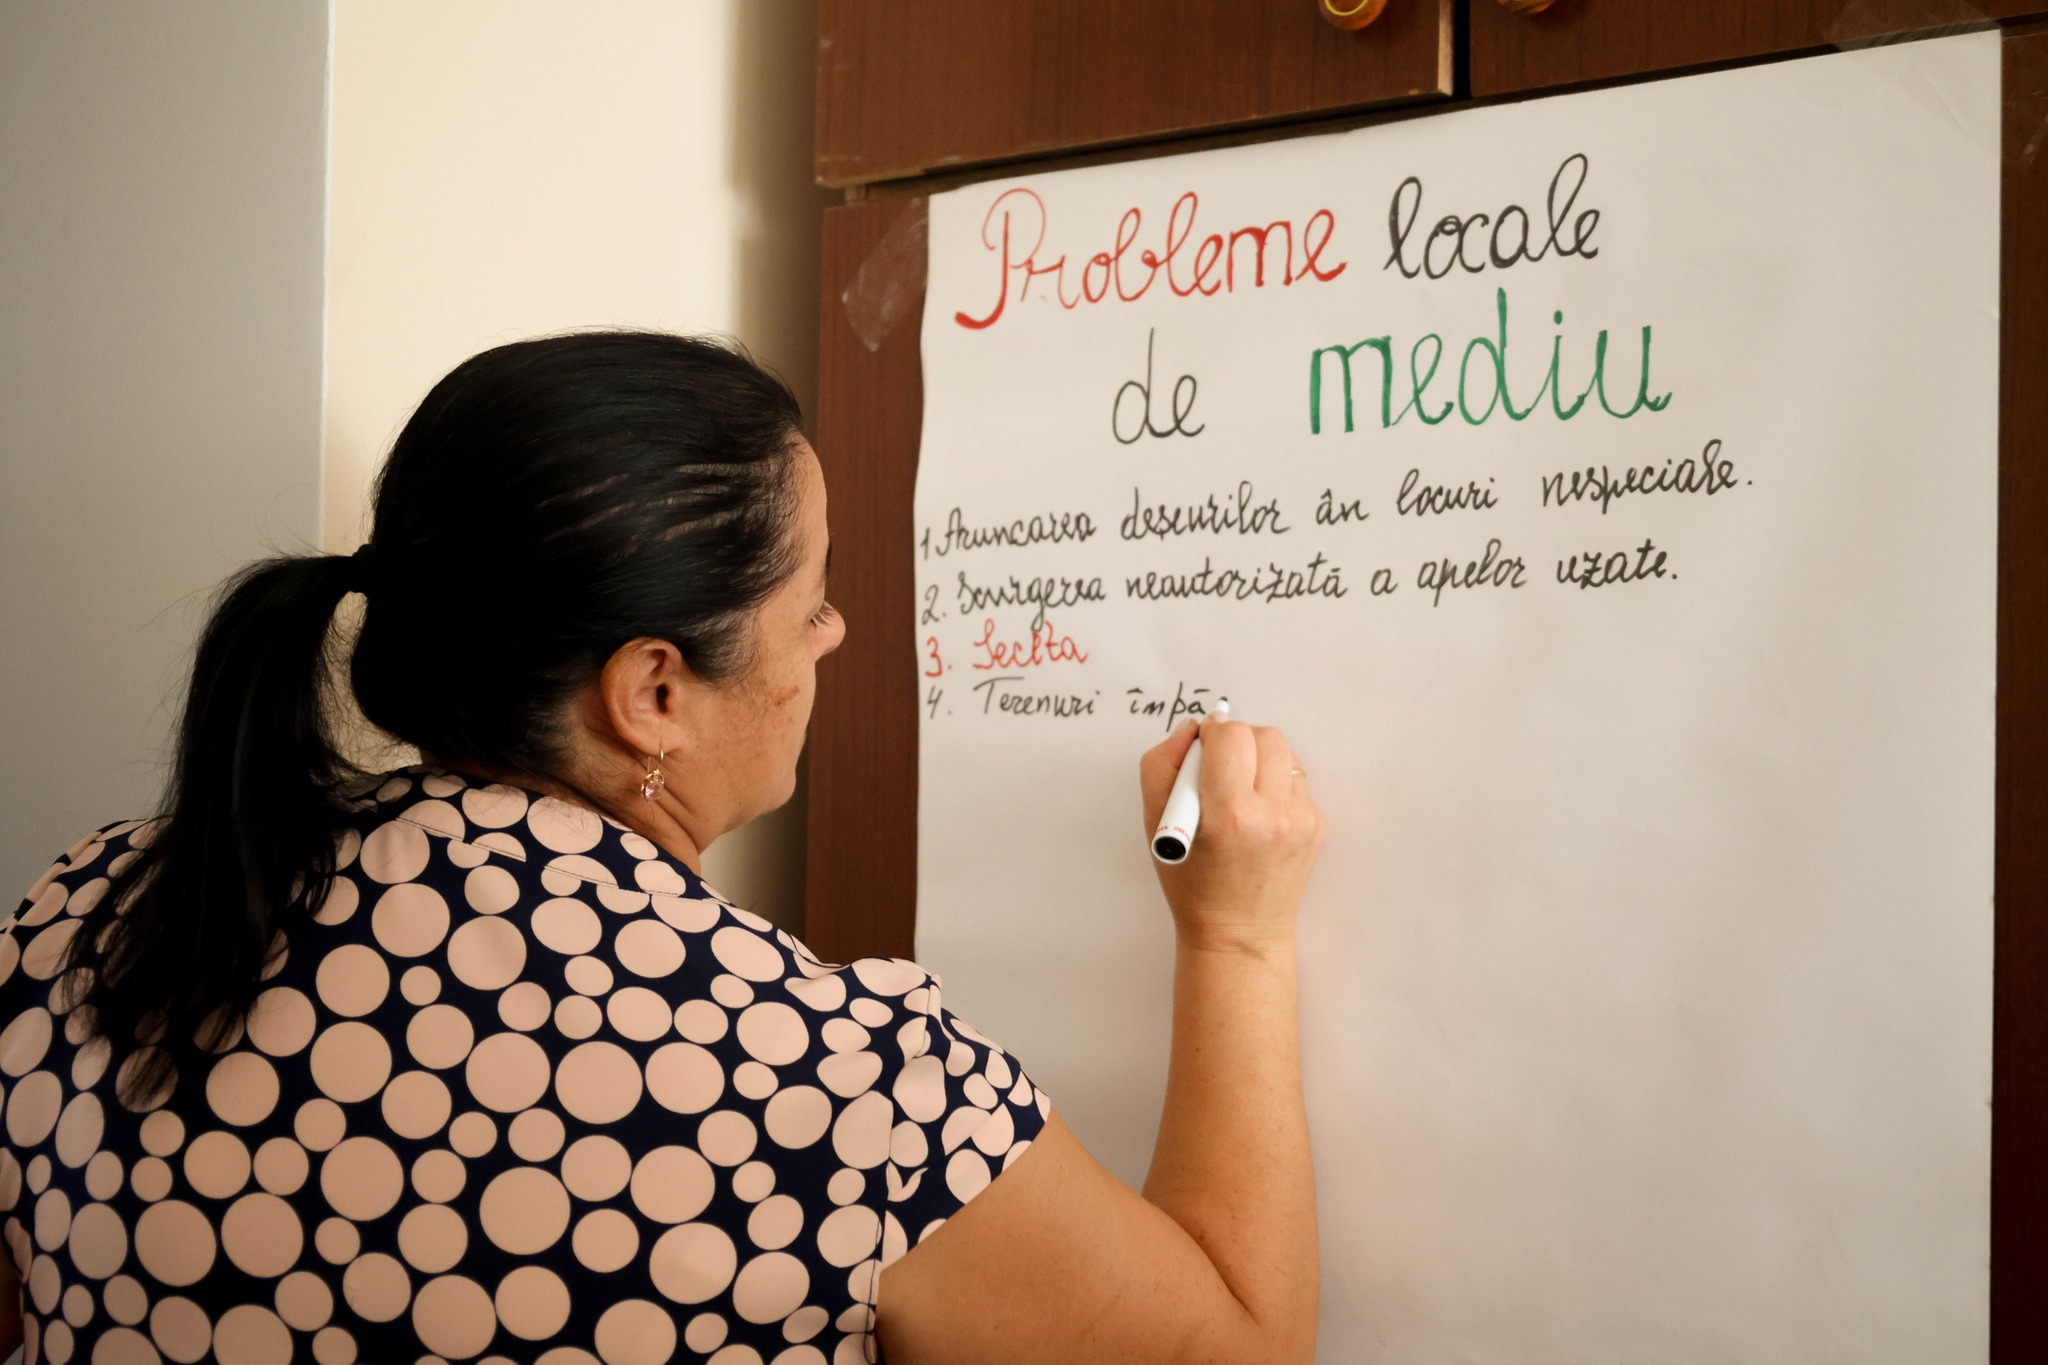 Probleme locale
de mediu
1 Aruncarea deșeurilor ân locuri nespeciale.
2. Scurgerea neautorizată a apelor uzate.
3. Seceta
4. Terenuri împă